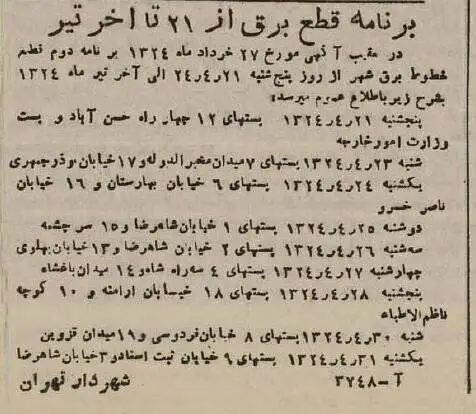 برنامه قطع برق از ۲۱ تا آخر تیر
در عقیب آگهی مورخ ۲۷ خرداد ماه ۱۳۲۴ برنامه دوم قطع
خطوط برق شهر از روز پنج‌شنبه ۲۱ر۴ر۲۴ الی آخر تیر ماه ۱۳۲۴
بشرح زیر باطلاع عموم میرسد:
پنجشنبه ۲۱ر۴ر۱۳۲۴ بستهای ۱۲ چهار راه حسن آباد و بست
وزارت امورخارجه
شنبه ۲۳ر۴ر۱۳۲۴ بستهای ۷ میدان مخبرالدوله و ۱۷ خیابان بوذرجمهری
یکشنبه ۲۴ر۴ر۱۳۲۴ بستهای ۶ خیابان بهارستان و ۱۶ خیابان
ناصر خسرو
دوشنبه ۲۵ر۴ر۱۳۲۴ بستهای ۱ خیابان شاهرضا و ۱۵ سرچشمه
سه‌شنبه ۲۶ر۴ر۱۳۲۴ بستهای ۲ خیابان شاهرضا و ۱۳ خیابان پهلوی
چهارشنبه ۲۷ر۴ر۱۳۲۴ بستهای ۴ سه راه شاه و ۱۴ میدان باغشاه
پنجشنبه ۲۸ر۴ر۱۳۲۴ بستهای ۱۸ خیابان ارامنه و ۱۰ کوچه
ناظم‌الاطباء
شنبه ۳۰ر۴ر۱۳۲۴ بستهای ۸ خیابان فردوسی و ۱۹ میدان قزوین
یکشنبه ۳۱ر۴ر۱۳۲۴ بستهای ۹ خیابان ثبت اسناد و ۳ خیابان شاهرضا
آ - ۳۷۴۸ شهردار تهران